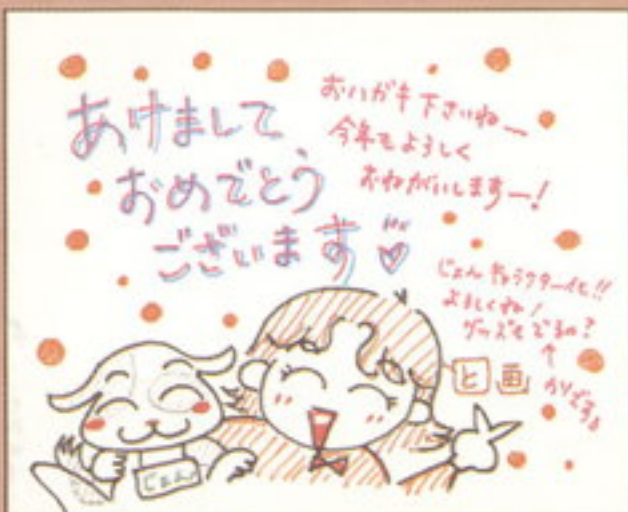 あけまして
おめでとう
ございます♡
おハガキ下さいねー
今年もよろしく
おねがいしますー!
じょんキャラクター化!!
よろしくね!
グッズもでるの?
↑
じょん